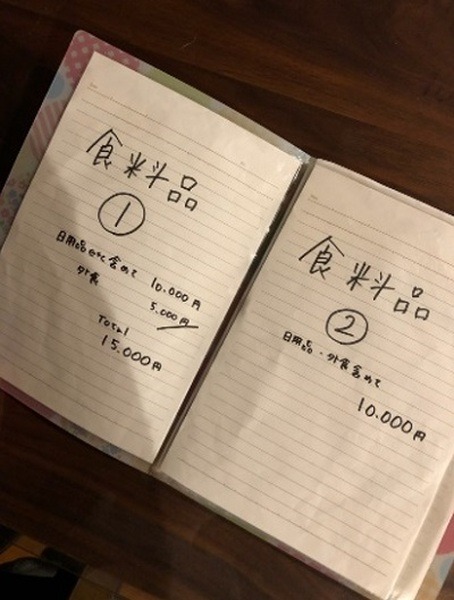 食料品
①
日用品etc含めて 10.000円
外食 5.000円
Total
15.000円
食料品
②
日用品・外食含めて
10.000円